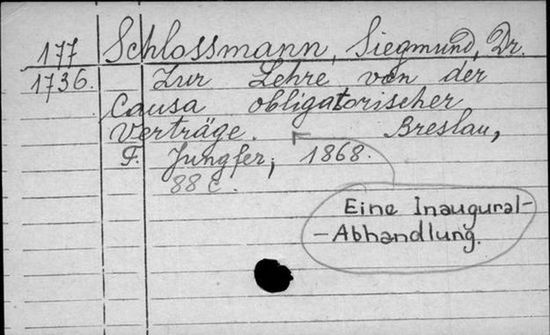 177 Schlossmann, Siegmund, Dr.
1736. Zur Lehre von der
Causa obligatorischer
Verträge. Breslau,
F. Jungfer, 1868.
88 c.
Eine Inaugural-
-Abhandlung.